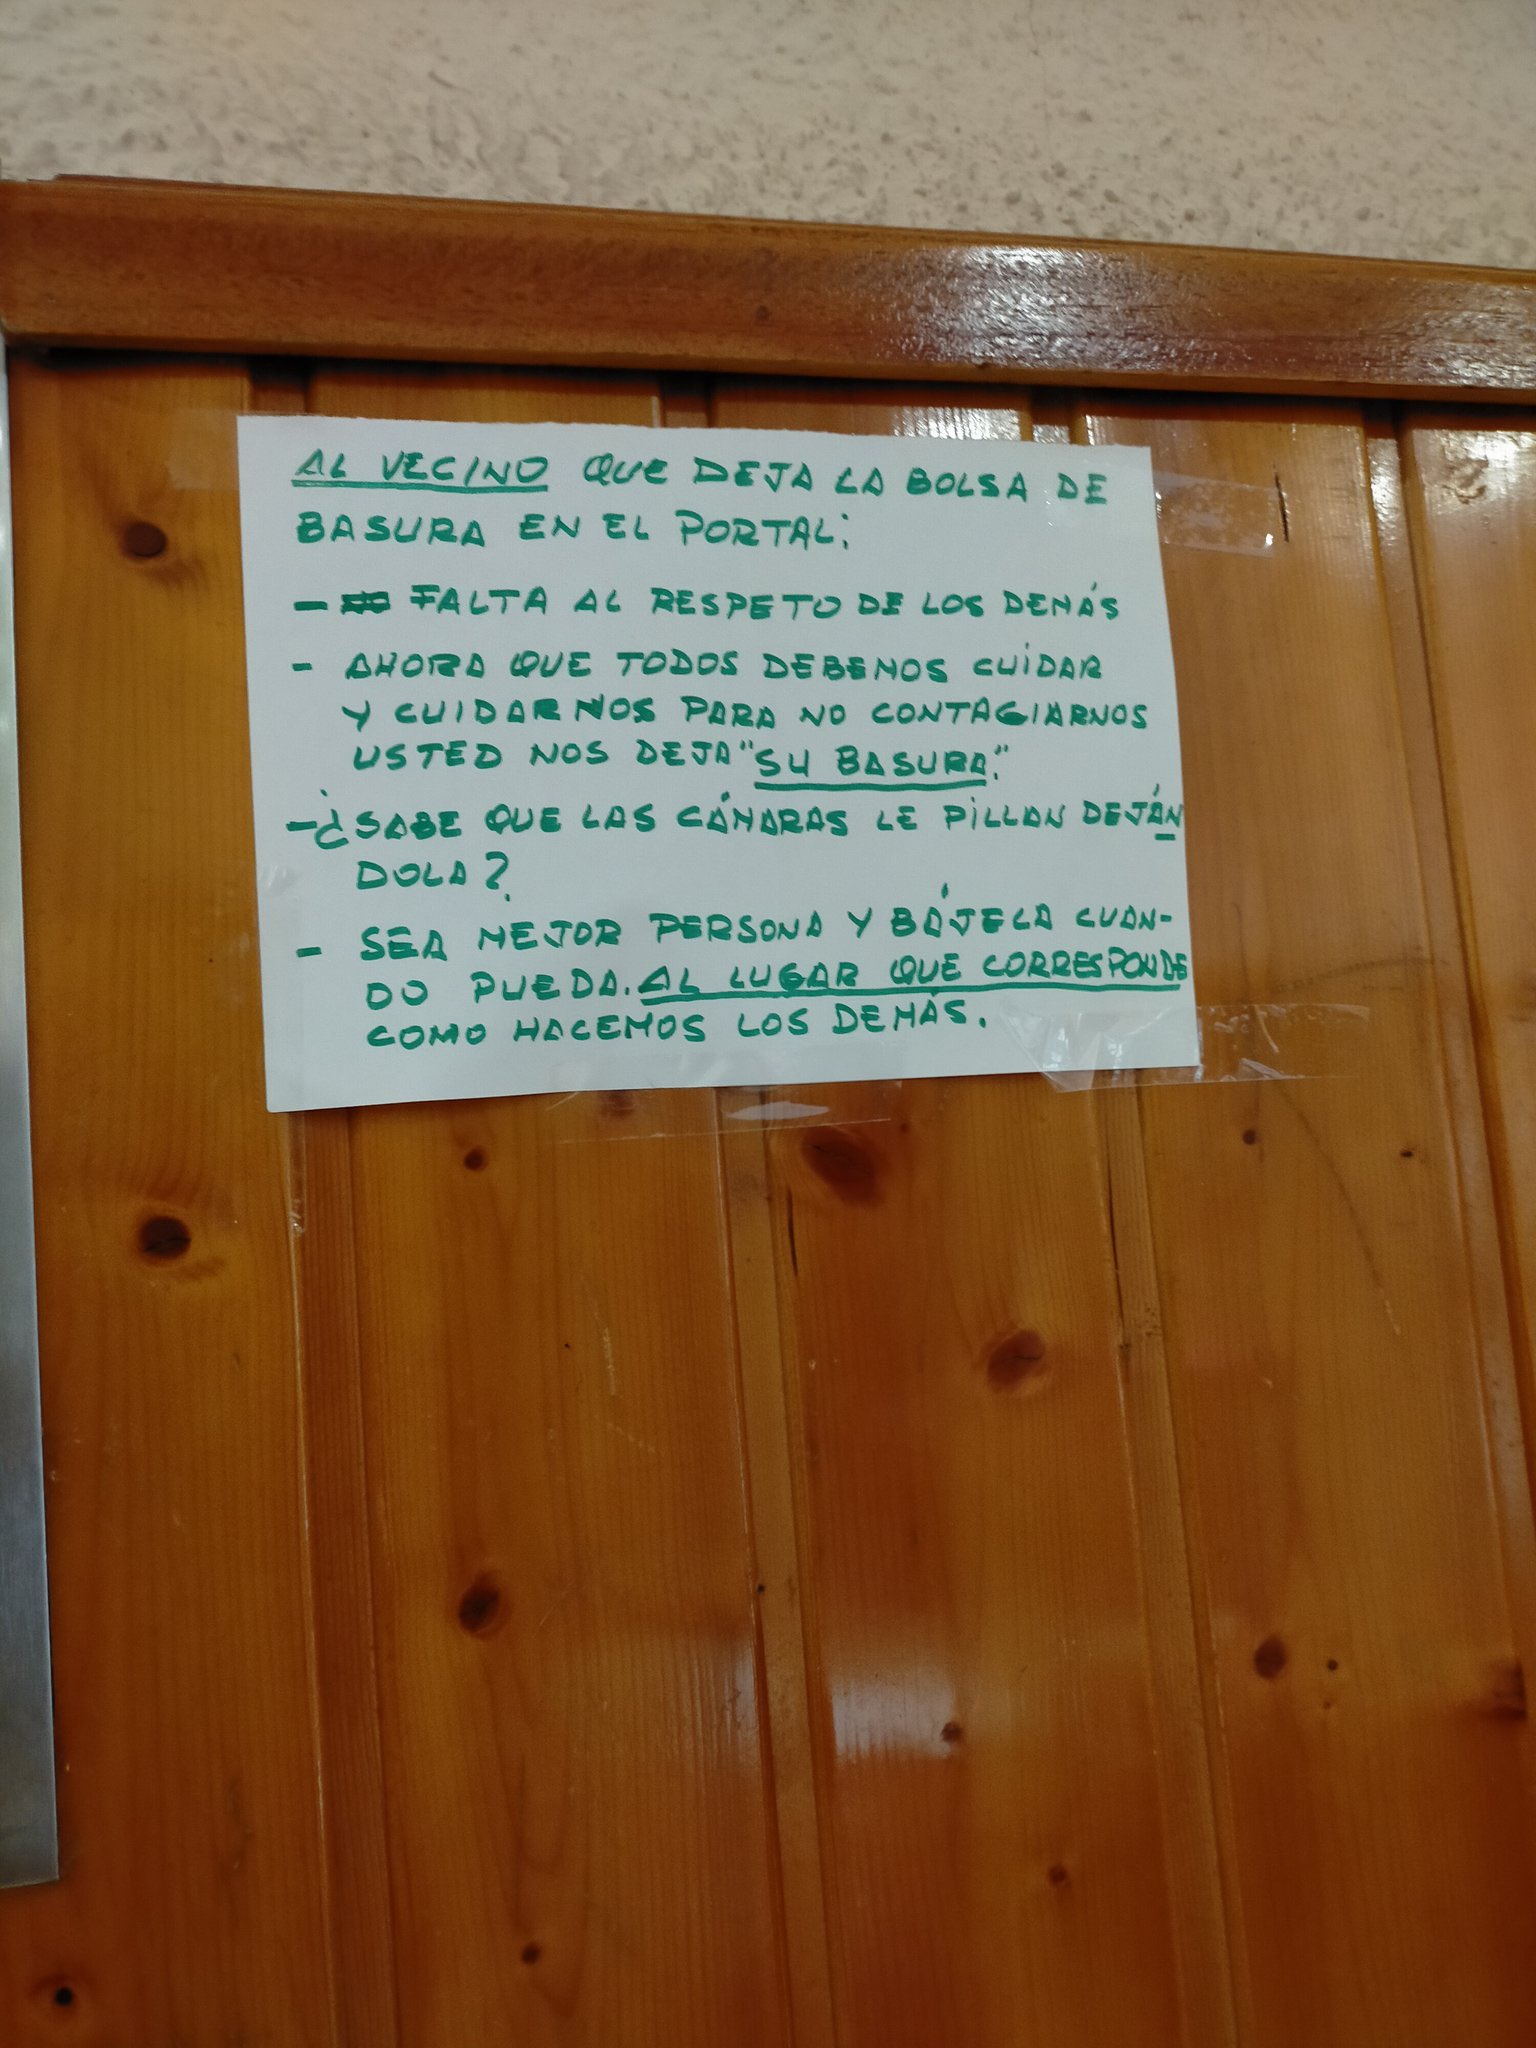 AL VECINO QUE DEJA LA BOLSA DE
BASURA EN EL PORTAL:
- FALTA AL RESPETO DE LOS DEMÁS
- AHORA QUE TODOS DEBEMOS CUIDAR
Y CUIDARNOS PARA NO CONTAGIARNOS
USTED NOS DEJA "SU BASURA."
- ¿SABE QUE LAS CÁMARAS LE PILLAN DEJÁN
DOLA?
- SEA MEJOR PERSONA Y BÁJELA CUAN-
DO PUEDA. AL LUGAR QUE CORRESPONDE
COMO HACEMOS LOS DEMÁS.